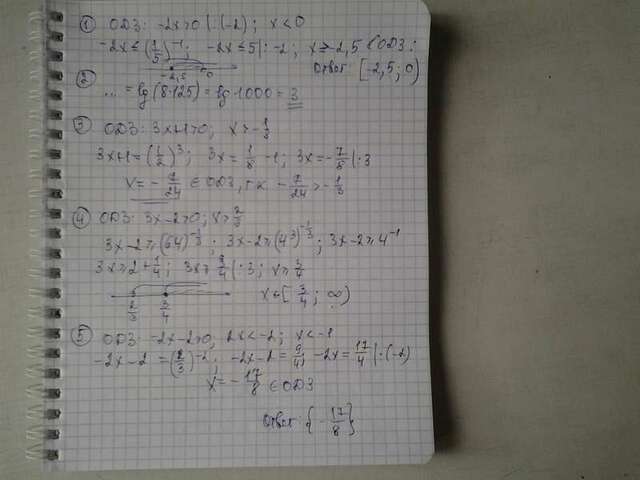 ① ОДЗ: -2x>0 |:(-2); x<0
-2x≤(1/5)^-1; -2x≤5|:-2; x≥-2,5 ∈ОДЗ;
-2,5 0 Ответ [-2,5; 0)
② ... = lg(8·125) = lg 1000 = 3
③ ОДЗ: 3x+1>0; x>-1/3
3x+1=(1/2)^3; 3x=1/8-1; 3x=-7/8|:3
x=-7/24 ∈ОДЗ, т.к -7/24>-1/3
④ ОДЗ: 3x-2>0; x>2/3
3x-2≥(64)^-1/3; 3x-2≥(4^3)^-1/3; 3x-2≥4^-1
3x≥2+1/4; 3x≥9/4|:3; x≥3/4
2/3 3/4 x∈[3/4; ∞)
⑤ ОДЗ: -2x-2>0, 2x<-2; x<-1
-2x-2=(2/3)^-2; -2x-2=9/4; -2x=17/4|:(-2)
x=-17/8 ∈ОДЗ
Ответ: {-17/8}